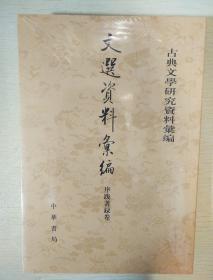 古典文學研究資料彙編
文選資料彙編
序跋著録卷
中華書局